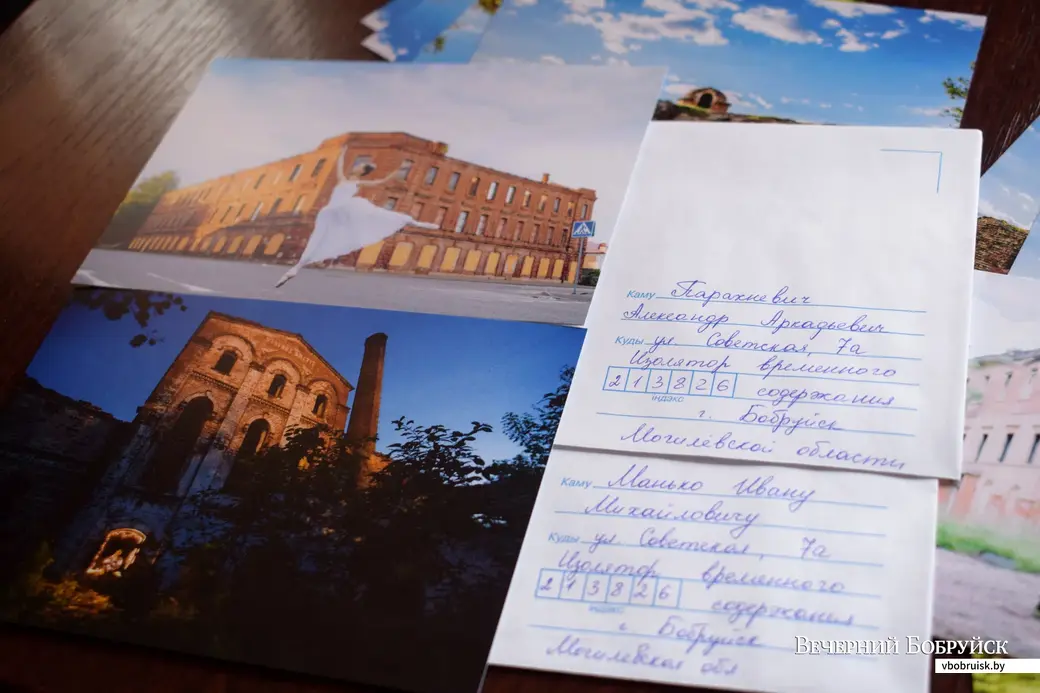 Каму Парахневич
Александр Аркадьевич
Куды ул. Советская, 7а
Изолятор временного
213826 содержания
індэкс
г. Бобруйск
Могилёвской области
Каму Манько Ивану
Михайловичу
Куды ул. Советская, 7а
Изолятор временного
213826 содержания
індэкс
г. Бобруйск
Могилевская обл
Вечерний Бобруйск
vbobruisk.by